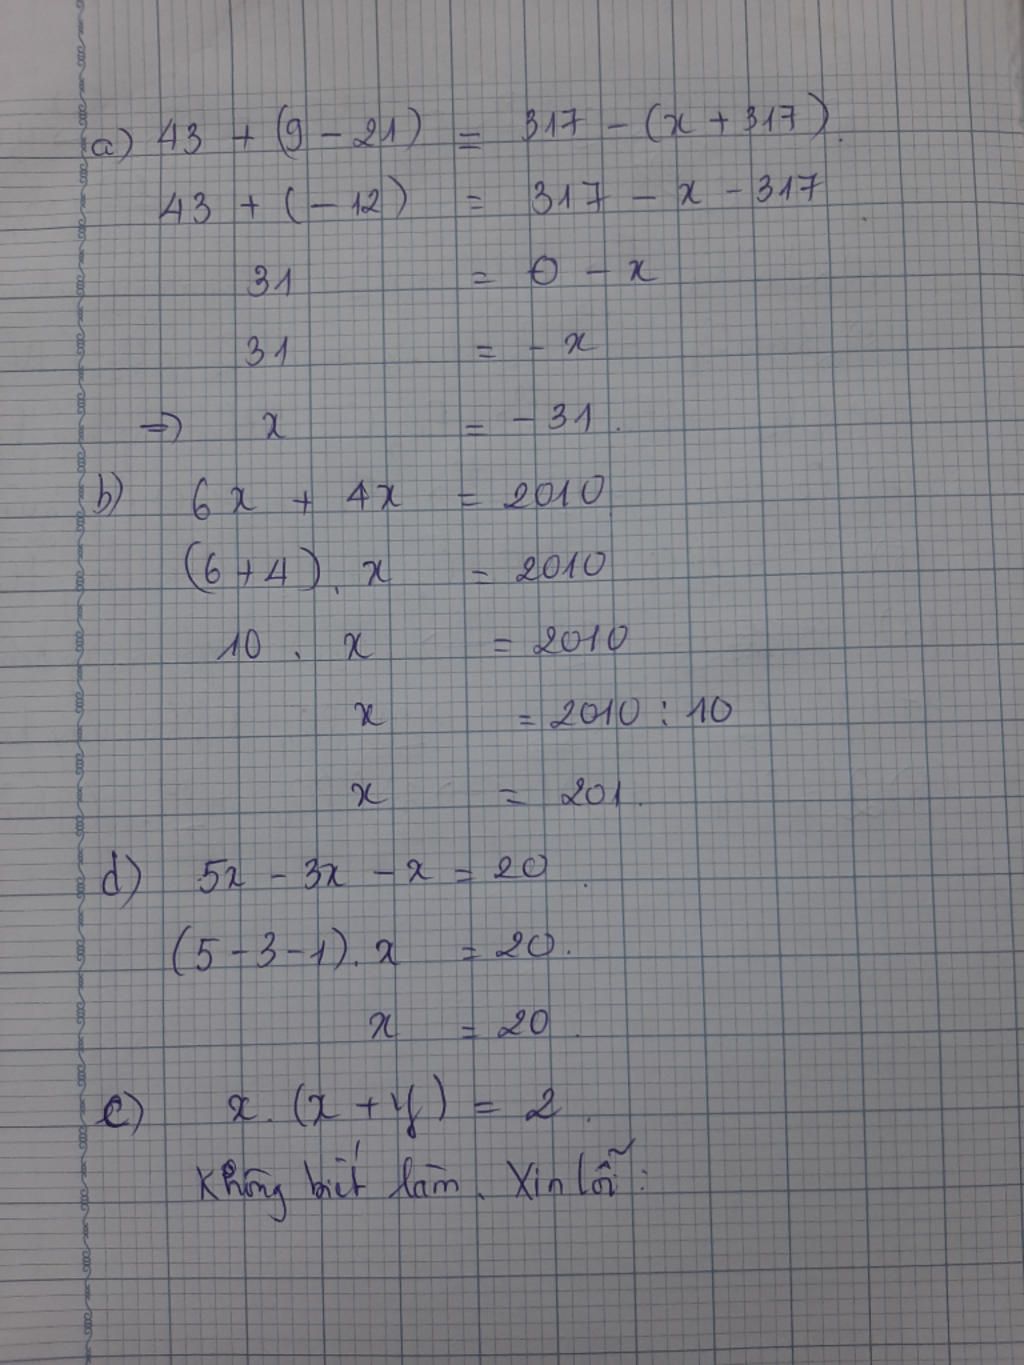 a) 43 + (9 - 21) = 317 - (x + 317).
43 + (-12) = 317 - x - 317
31 = 0 - x
31 = - x
=> x = - 31.
b) 6x + 4x = 2010
(6 + 4). x = 2010
10 . x = 2010
x = 2010 : 10
x = 201.
d) 5x - 3x - x = 20.
(5 - 3 - 1). x = 20.
x = 20.
c) x. (x + y) = 2.
Không biết làm. Xin lỗi: